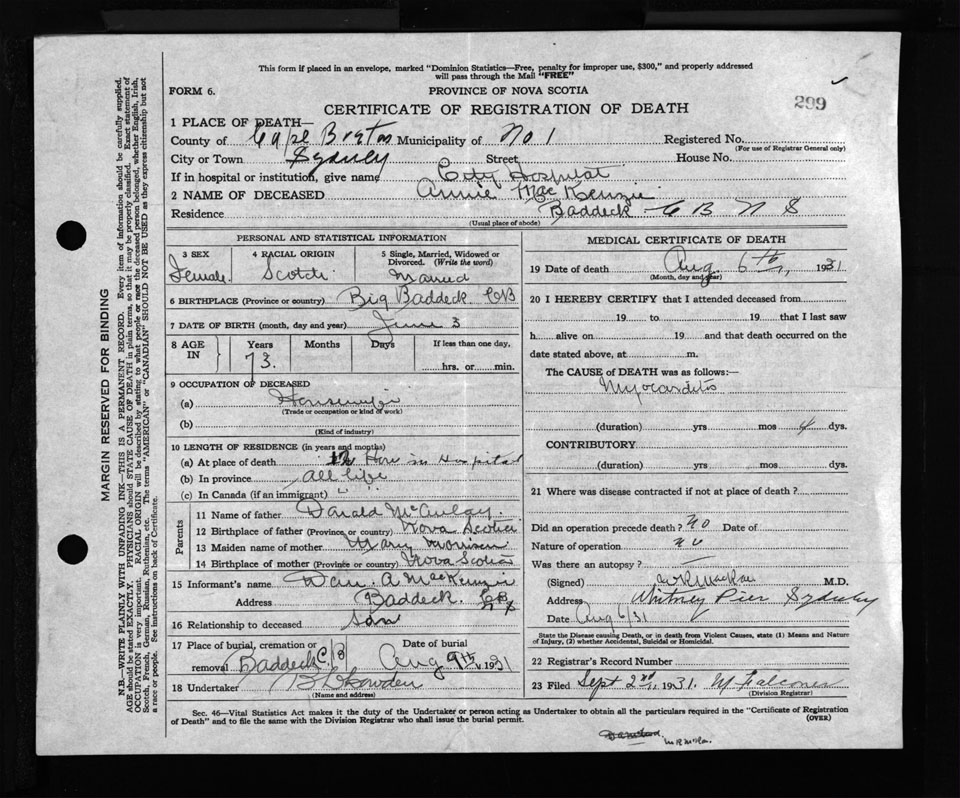 This form if placed in an envelope, marked "Dominion Statistics—Free, penalty for improper use, $300," and properly addressed
will pass through the Mail "FREE"
FORM 6.
PROVINCE OF NOVA SCOTIA
299
CERTIFICATE OF REGISTRATION OF DEATH
1 PLACE OF DEATH—
County of Cape Breton Municipality of No 1 Registered No.
(For use of Registrar General only)
City or Town Sydney Street House No.
If in hospital or institution, give name City Hospital
2 NAME OF DECEASED Annie MacKenzie
Residence Baddeck C B N S
(Usual place of abode)
PERSONAL AND STATISTICAL INFORMATION
3 SEX 4 RACIAL ORIGIN 5 Single, Married, Widowed or Divorced. (Write the word)
Female Scotch Married
6 BIRTHPLACE (Province or country) Big Baddeck CB
7 DATE OF BIRTH (month, day and year) June 3
8 AGE IN Years Months Days If less than one day,
73 hrs. or min.
9 OCCUPATION OF DECEASED
(a) Housewife
(Trade or occupation or kind of work)
(b)
(Kind of industry)
10 LENGTH OF RESIDENCE (in years and months)
(a) At place of death in Hospital
(b) In province All life
(c) In Canada (if an immigrant) " " "
Parents
11 Name of father Donald McAulay
12 Birthplace of father (Province or country) Nova Scotia
13 Maiden name of mother Mary Morrison
14 Birthplace of mother (Province or country) Nova Scotia
15 Informant's name A MacKenzie
Address Baddeck CB NS
16 Relationship to deceased Son
17 Place of burial, cremation or removal Baddeck C B Date of burial Aug 9th, 1931
18 Undertaker
(Name and address)
MEDICAL CERTIFICATE OF DEATH
19 Date of death Aug 6th, 1931
(Month, day and year)
20 I HEREBY CERTIFY that I attended deceased from
19 to 19 that I last saw
h alive on 19 and that death occurred on the
date stated above, at m.
The CAUSE of DEATH was as follows:—
Myocarditis
(duration) yrs mos 4 dys.
CONTRIBUTORY
(duration) yrs. mos dys.
21 Where was disease contracted if not at place of death?
Did an operation precede death? No Date of
Nature of operation No
Was there an autopsy? —
(Signed) MacRae M.D.
Address Whitney Pier Sydney
Date Aug 6/31
State the Disease causing Death, or in death from Violent Causes, state (1) Means and Nature
of Injury, (2) whether Accidental, Suicidal or Homicidal.
22 Registrar's Record Number
23 Filed Sept 2nd, 1931. M Falconer
(Division Registrar)
Sec. 46—Vital Statistics Act makes it the duty of the Undertaker or person acting as Undertaker to obtain all the particulars required in the "Certificate of Registration
of Death" and to file the same with the Division Registrar who shall issue the burial permit.
(OVER)
MARGIN RESERVED FOR BINDING
N.B.—WRITE PLAINLY WITH UNFADING INK—THIS IS A PERMANENT RECORD. Every item of information should be carefully supplied.
AGE should be stated EXACTLY. PHYSICIANS should STATE CAUSE OF DEATH in plain terms, so that it may be properly classified. Exact statement of
OCCUPATION is very important. RACIAL ORIGIN will be described by stating to what people or race the deceased person belonged, whether English, Irish,
Scotch, French, German, Russian, Ruthenian, etc. The terms "AMERICAN" or "CANADIAN" SHOULD NOT BE USED as they express citizenship but not
a race or people. See instructions on back of Certificate.